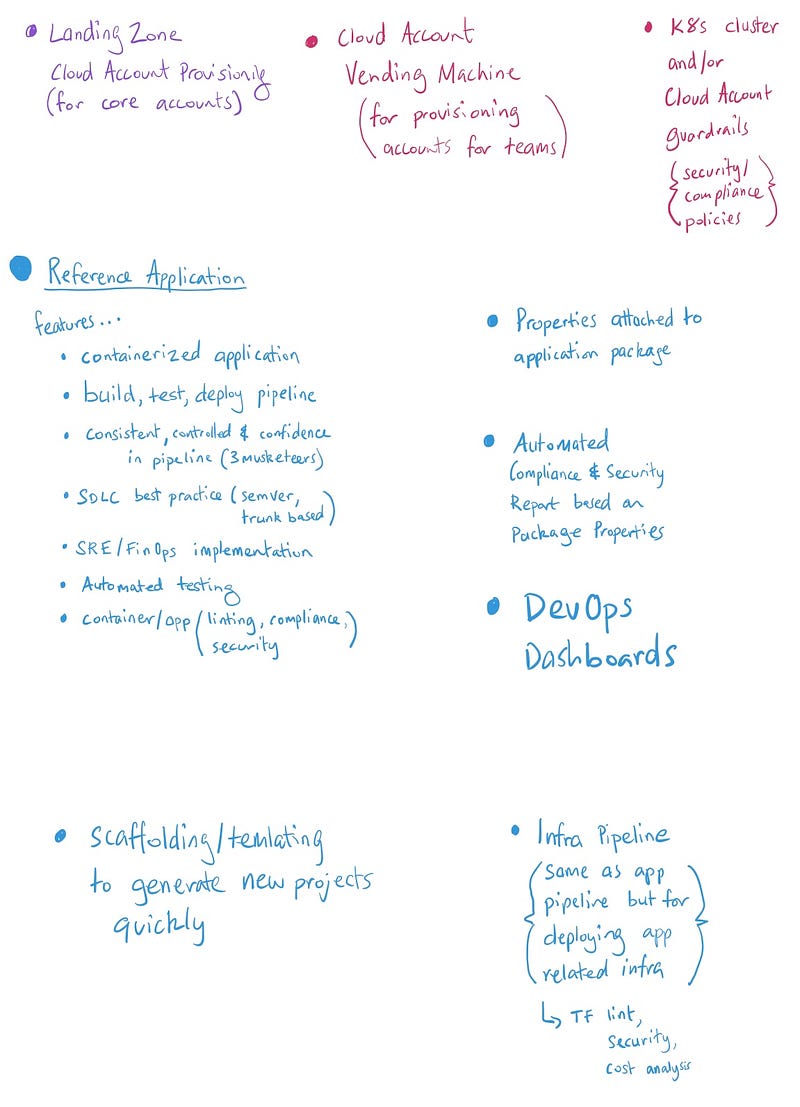 • Landing Zone
Cloud Account Provisionily
(for core accounts)
• Cloud Account
Vending Machine
(for provisioning
accounts for teams)
• K8s cluster
and/or
Cloud Account
guardrails
{security/
compliance
policies}
• Reference Application
features...
• containerized application
• build, test, deploy pipeline
• consistent, controlled & confidence
in pipeline (3musketeers)
• SDLC best practice (semver,
trunk based)
• SRE/FinOps implementation
• Automated testing
• container/app (linting, compliance,
security)
• Properties attached to
application package
• Automated
Compliance & Security
Report based on
Package Properties
• DevOps
Dashboards
• Scaffolding/temlating
to generate new projects
quickly
• Infra Pipeline
{same as app
pipeline but for
deploying app
related infra}
↳ TF lint,
security,
cost analysis